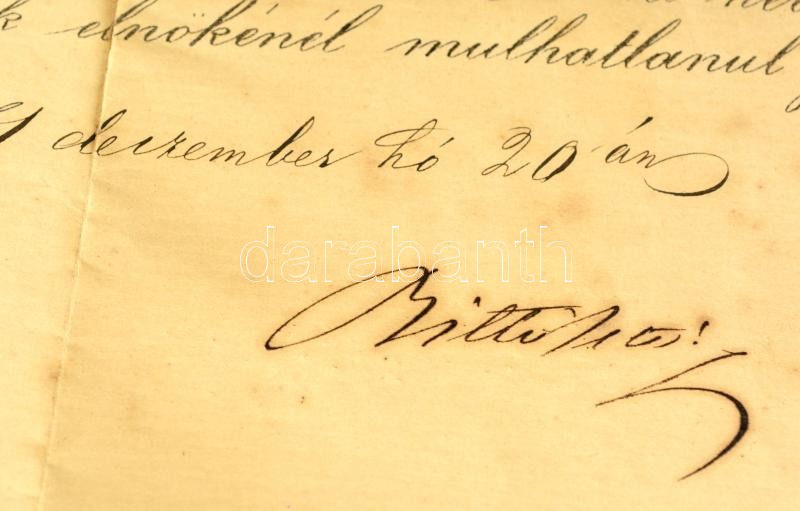 k elnökénél mulhatlanul
deczember hó 20 án
darabanth
Bittó